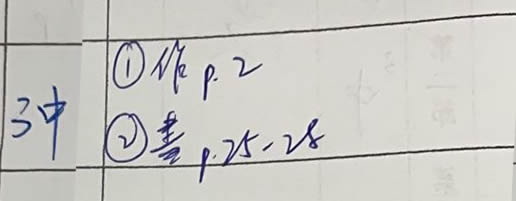 3中
①作 p.2
②書 p.25-28